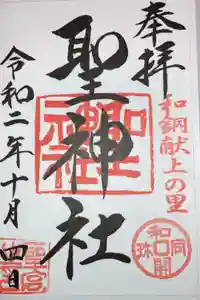 奉拝
和銅献上の里
聖神社
令和二年十月四日
和同開珎